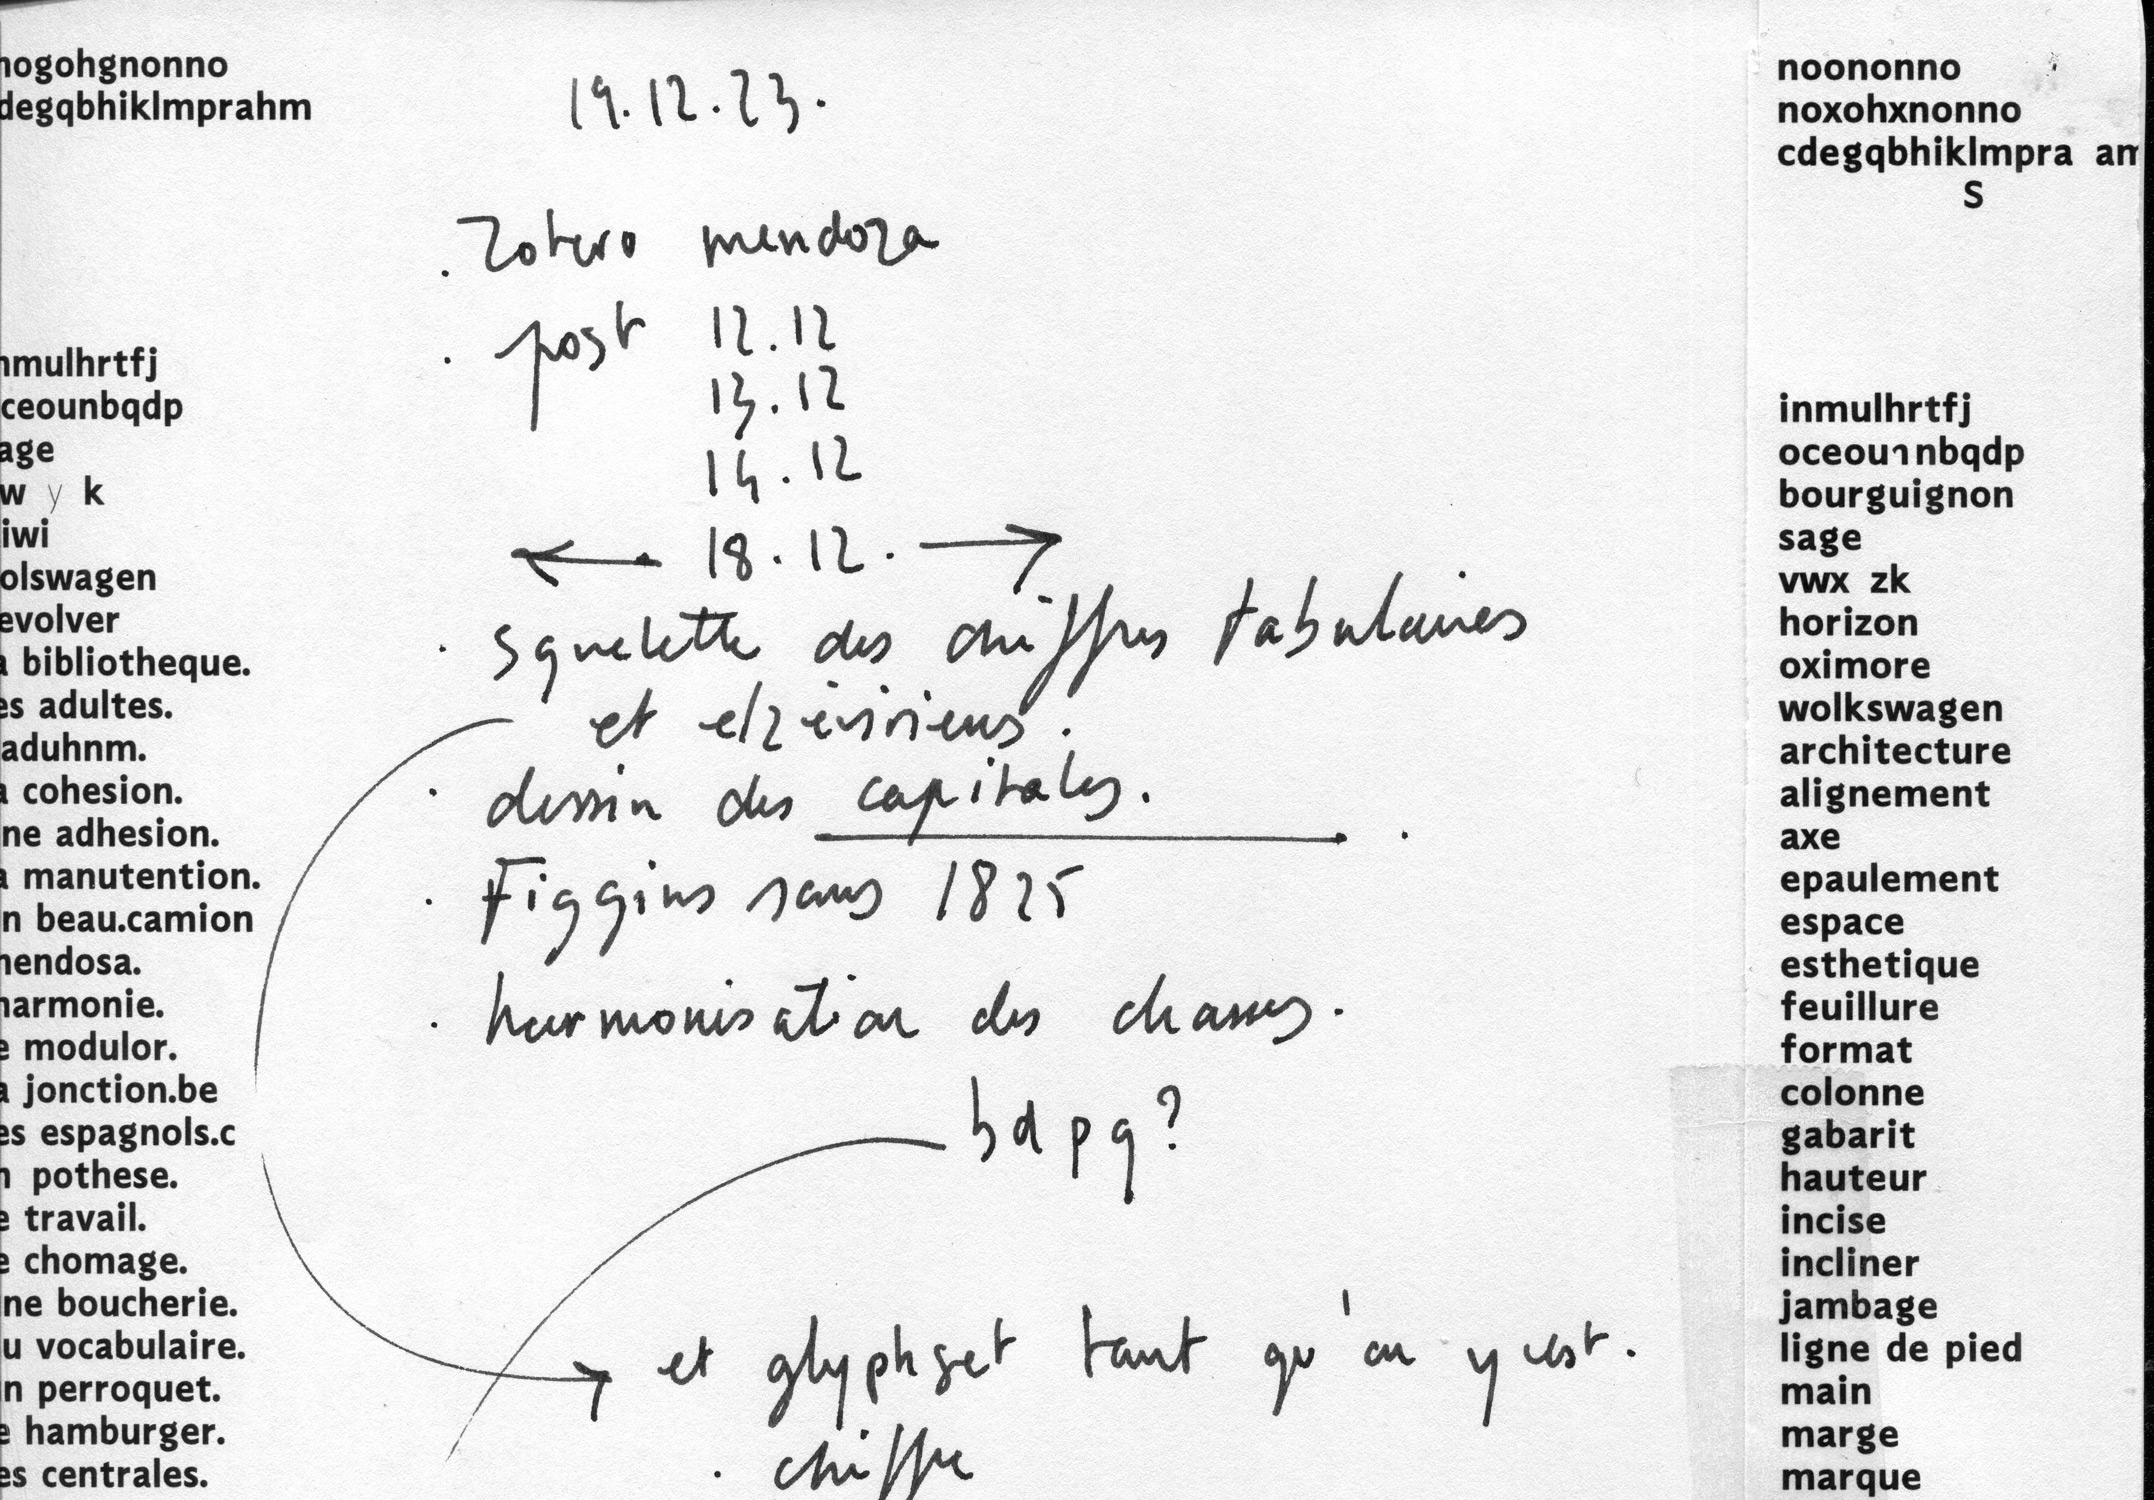 nogohgnonno
degqbhiklmprahm
nmulhrtfj
ceounbqdp
age
w y k
iwi
olswagen
evolver
a bibliotheque.
es adultes.
aduhnm.
a cohesion.
ne adhesion.
a manutention.
n beau.camion
mendosa.
harmonie.
e modulor.
a jonction.be
es espagnols.c
h pothese.
e travail.
e chomage.
ne boucherie.
u vocabulaire.
n perroquet.
e hamburger.
es centrales.
19.12.23.
. Zotero mendoza
. post 12.12
13.12
14.12
← 18.12. →
. squelette des chiffres tabulaires
et elzéviriens.
. dessin des capitales.
. Figgins sans 1825
. harmonisation des chasses.
b d p q ?
→ et glyphset tant qu'on y est.
. chiffre
noononno
noxohxnonno
cdegqbhiklmpra am
S
inmulhrtfj
oceou1nbqdp
bourguignon
sage
vwx zk
horizon
oximore
wolkswagen
architecture
alignement
axe
epaulement
espace
esthetique
feuillure
format
colonne
gabarit
hauteur
incise
incliner
jambage
ligne de pied
main
marge
marque